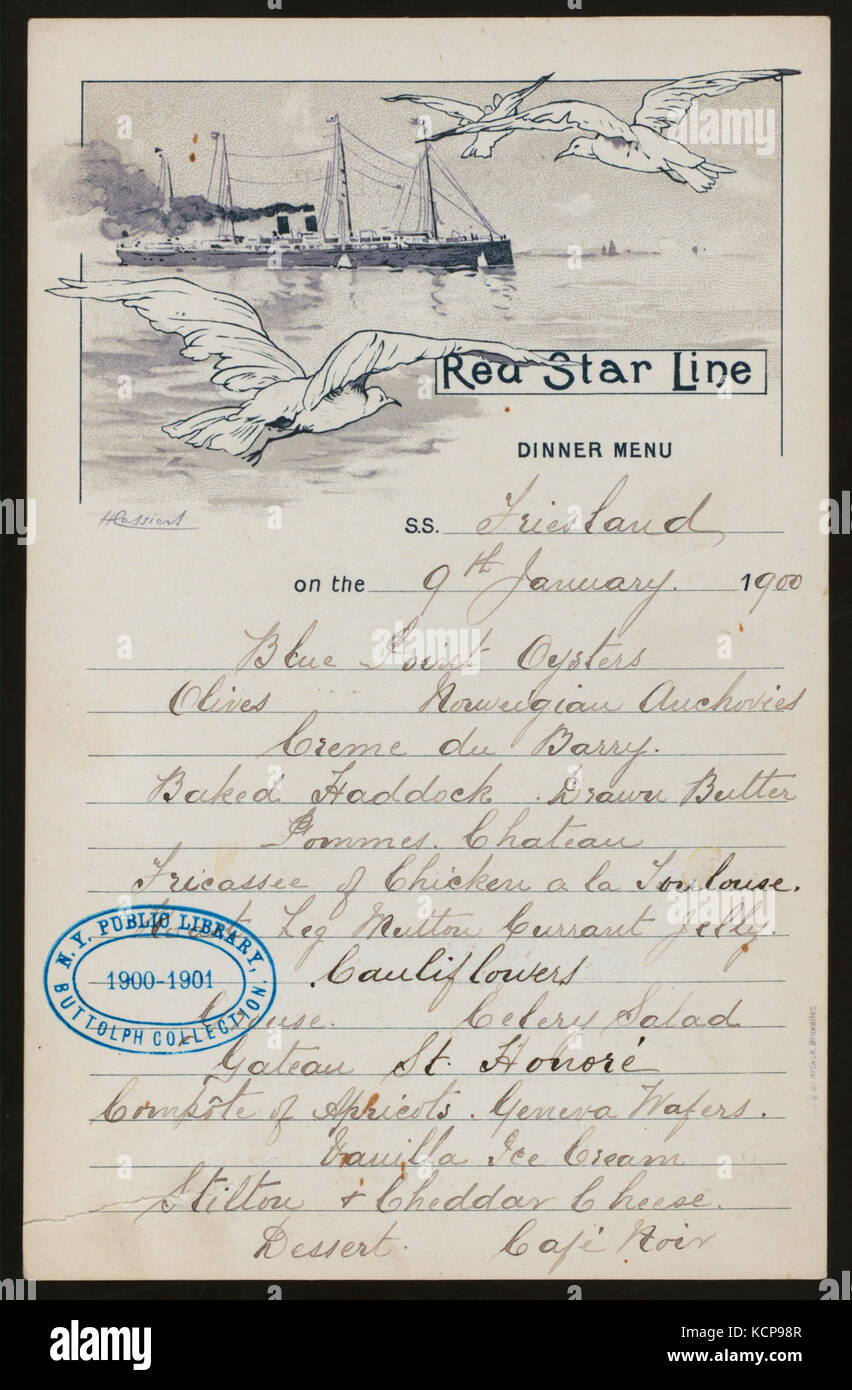 Red Star Line
DINNER MENU
H Cassiers
S.S. Friesland
on the 9th January. 1900
Blue Point Oysters
Olives Norweigian Anchovies
Creme du Barry.
Baked Haddock. Drawn Butter
Pommes. Chateau
Fricassee of Chicken a la Toulouse.
Leg Mutton Currant Jelly.
Cauliflowers
Grouse. Celery Salad
Gateau St. Honoré
Compôte of Apricots. Geneva Wafers.
Vanilla Ice Cream
Stilton & Cheddar Cheese.
Dessert. Café Noir
N.Y. PUBLIC LIBRARY,
1900-1901
BUTTOLPH COLLECTION.
alamy
Image ID: KCP98R
www.alamy.com